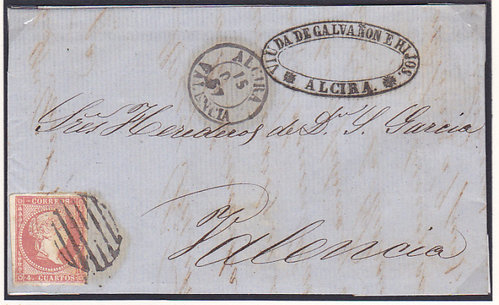 VIUDA DE GALVAÑON E HIJOS.
ALCIRA.
ALCIRA
15
VALENCIA
Sres Herederos de Dn S. Garcia
Valencia
CORREOS
4 CUARTOS